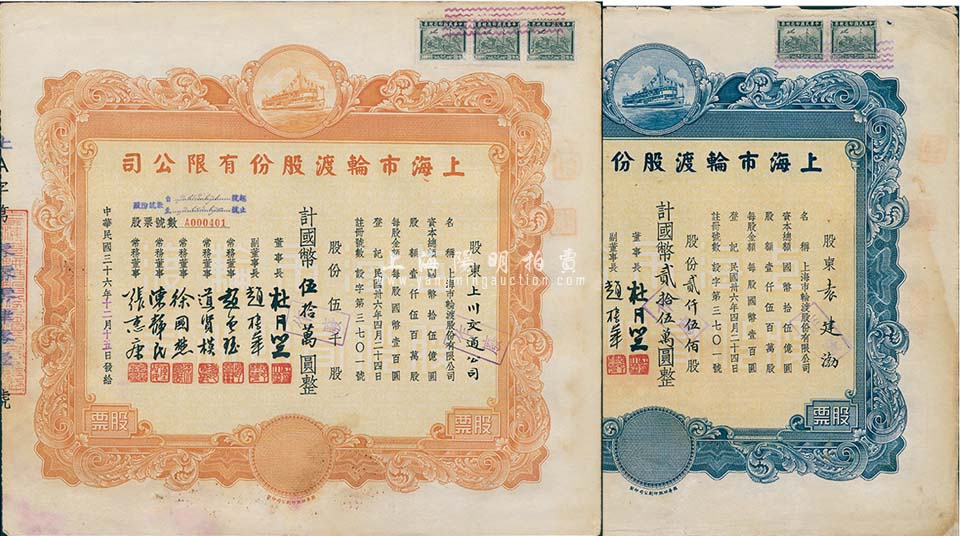 司公限有份股渡輪市海上
股東上川交通公司
名稱上海市輪渡股份有限公司
資本總額國幣拾伍億圓
股額壹仟伍百萬股
每股金額每股國幣壹百圓
登記民國卅六年四月二十四日
註冊號數設字第三七〇一號
股份伍千股
計國幣伍拾萬圓整
董事長 杜月笙
副董事長
常務董事
常務董事
常務董事 徐國懋
常務董事 陳靜民
常務董事 張惠康
股票號數 A000401
中華民國三十六年十二月十五日發給
票股
票股
份股渡輪市海上
股東袁建渤
名稱上海市輪渡股份有限公司
資本總額國幣拾伍億圓
股額壹仟伍百萬股
每股金額每股國幣壹百圓
登記民國卅六年四月二十四日
註冊號數設字第三七〇一號
股份貳仟伍佰股
計國幣貳拾伍萬圓整
董事長 杜月笙
副董事長
票股
上海陽明拍賣
yangmingauction.com